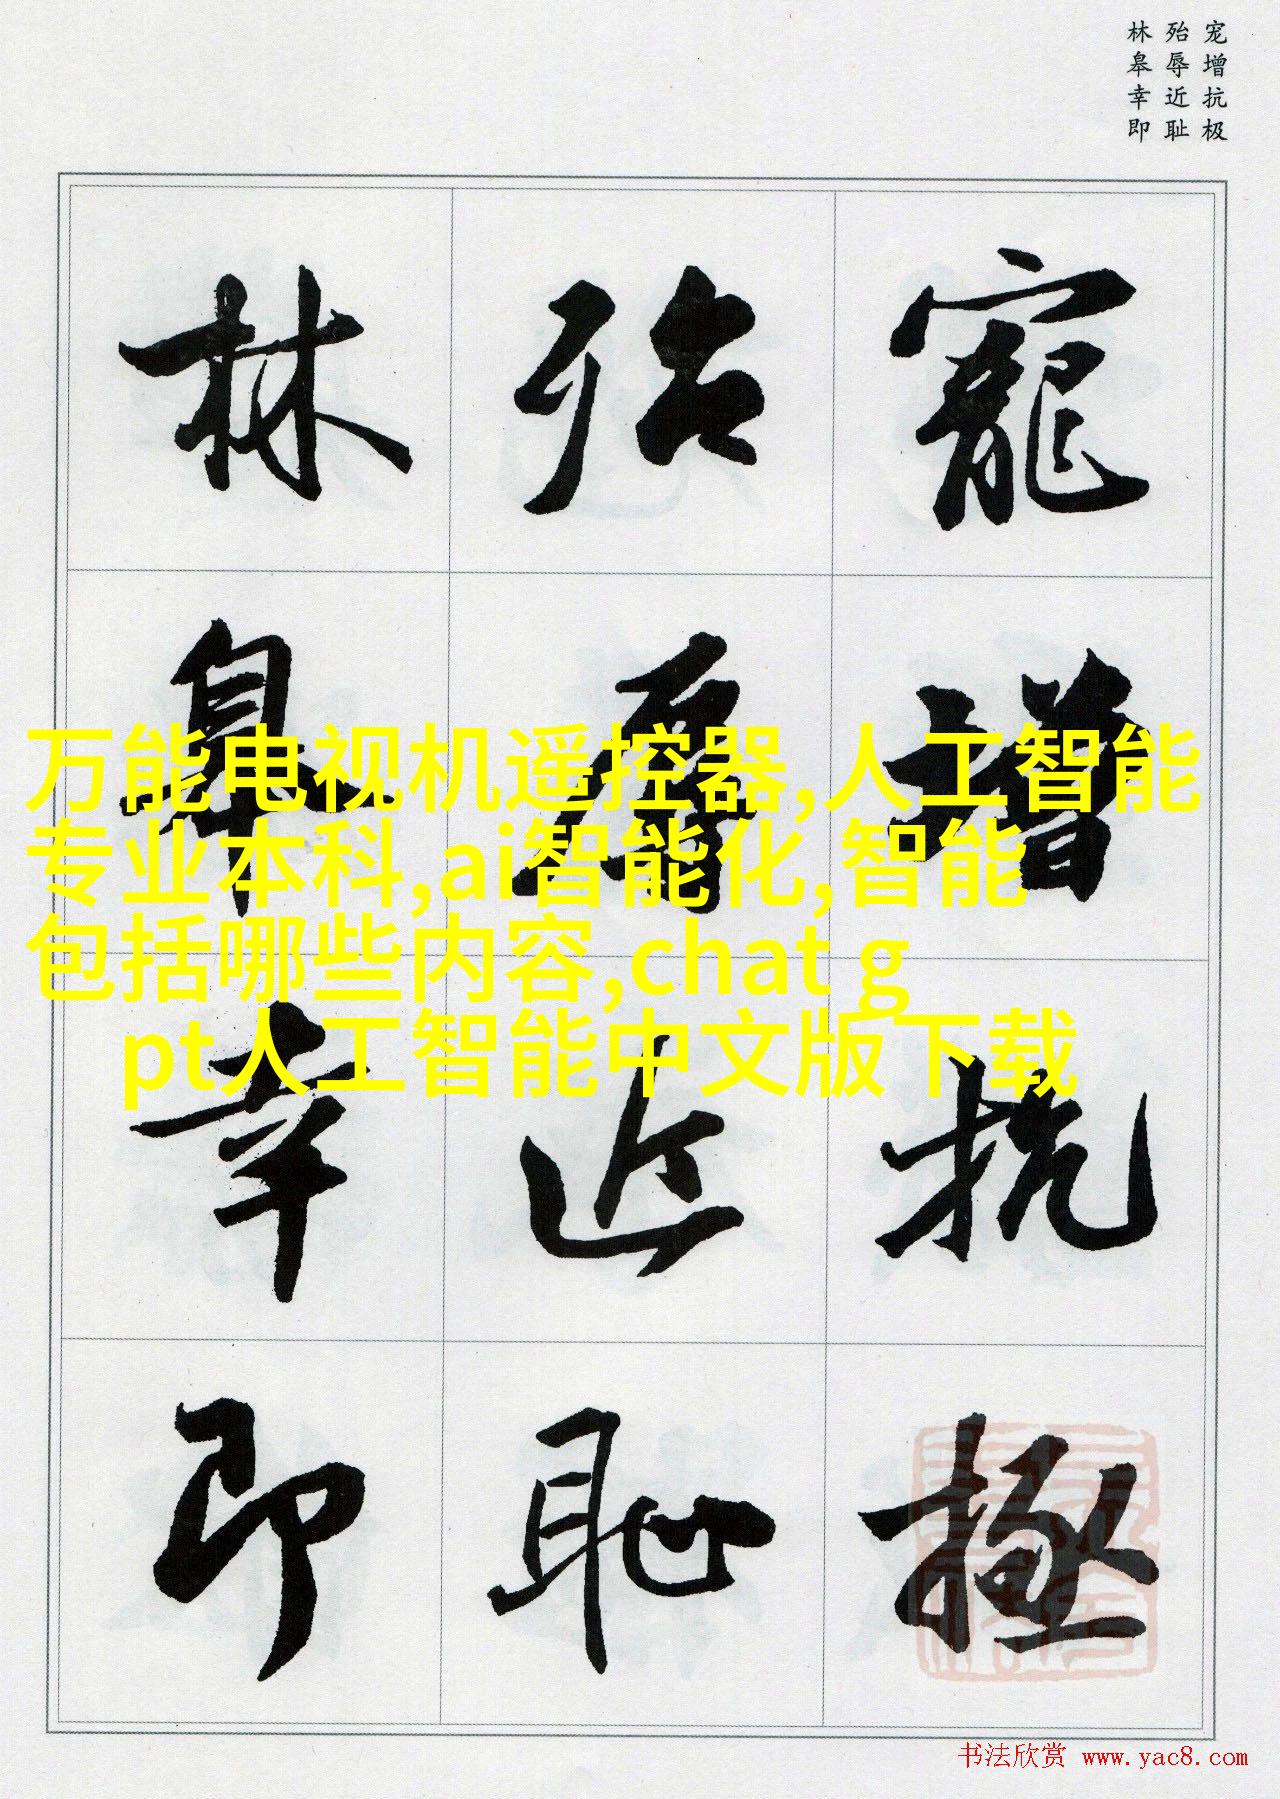 宠增抗极
殆辱近耻
林皋幸即
寵增抗極
殆辱近恥
林皋幸即
万能电视机遥控器,人工智能
专业本科,ai智能化,智能
包括哪些内容,chat g
pt人工智能中文版下载
书法欣赏 www.yac8.com